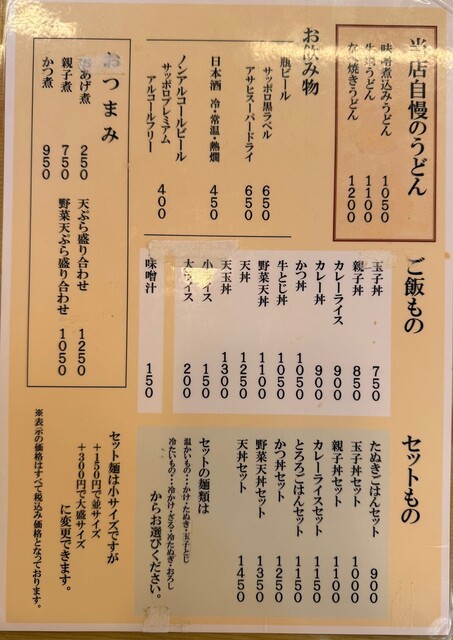 当店自慢のうどん
味噌煮込みうどん 1050
牛鍋うどん 1100
なべ焼きうどん 1200
お飲み物
瓶ビール
サッポロ黒ラベル 650
アサヒスーパードライ 650
日本酒 冷・常温・熱燗 450
ノンアルコールビール
サッポロプレミアム
アルコールフリー 400
おつまみ
あげ煮 250
親子煮 750
かつ煮 950
天ぷら盛り合わせ 1250
野菜天ぷら盛り合わせ 1050
ご飯もの
玉子丼 750
親子丼 850
カレーライス 900
カレー丼 900
かつ丼 1050
牛とじ丼 1050
野菜天丼 1100
天丼 1250
天玉丼 1300
小ライス 150
大ライス 200
味噌汁 150
セットもの
たぬきごはんセット 900
玉子丼セット 1000
親子丼セット 1100
カレーライスセット 1150
とろろごはんセット 1150
かつ丼セット 1250
野菜天丼セット 1350
天丼セット 1450
セットの麺類は
温かいもの・・かけ・たぬき・玉子とじ
冷たいもの・・冷かけ・ざる・冷たぬき・おろし
からお選びください。
セット麺は小サイズですが
+150円で並サイズ
+300円で大盛サイズ
に変更できます。
※表示の価格はすべて税込み価格となっております。